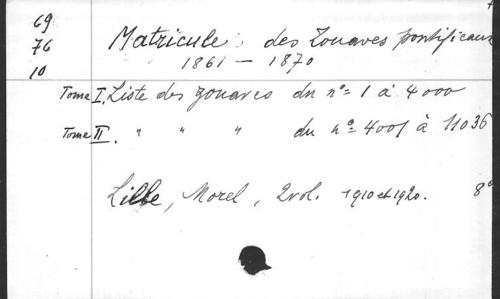 69
76
10
Matricule des Zouaves pontificaux
1861 - 1870
Tome I. Liste des zouaves du n° 1 à 4000
Tome II. " " " du n° 4001 à 11036
Lille, Morel, 2 vol. 1910 et 1920. 8°